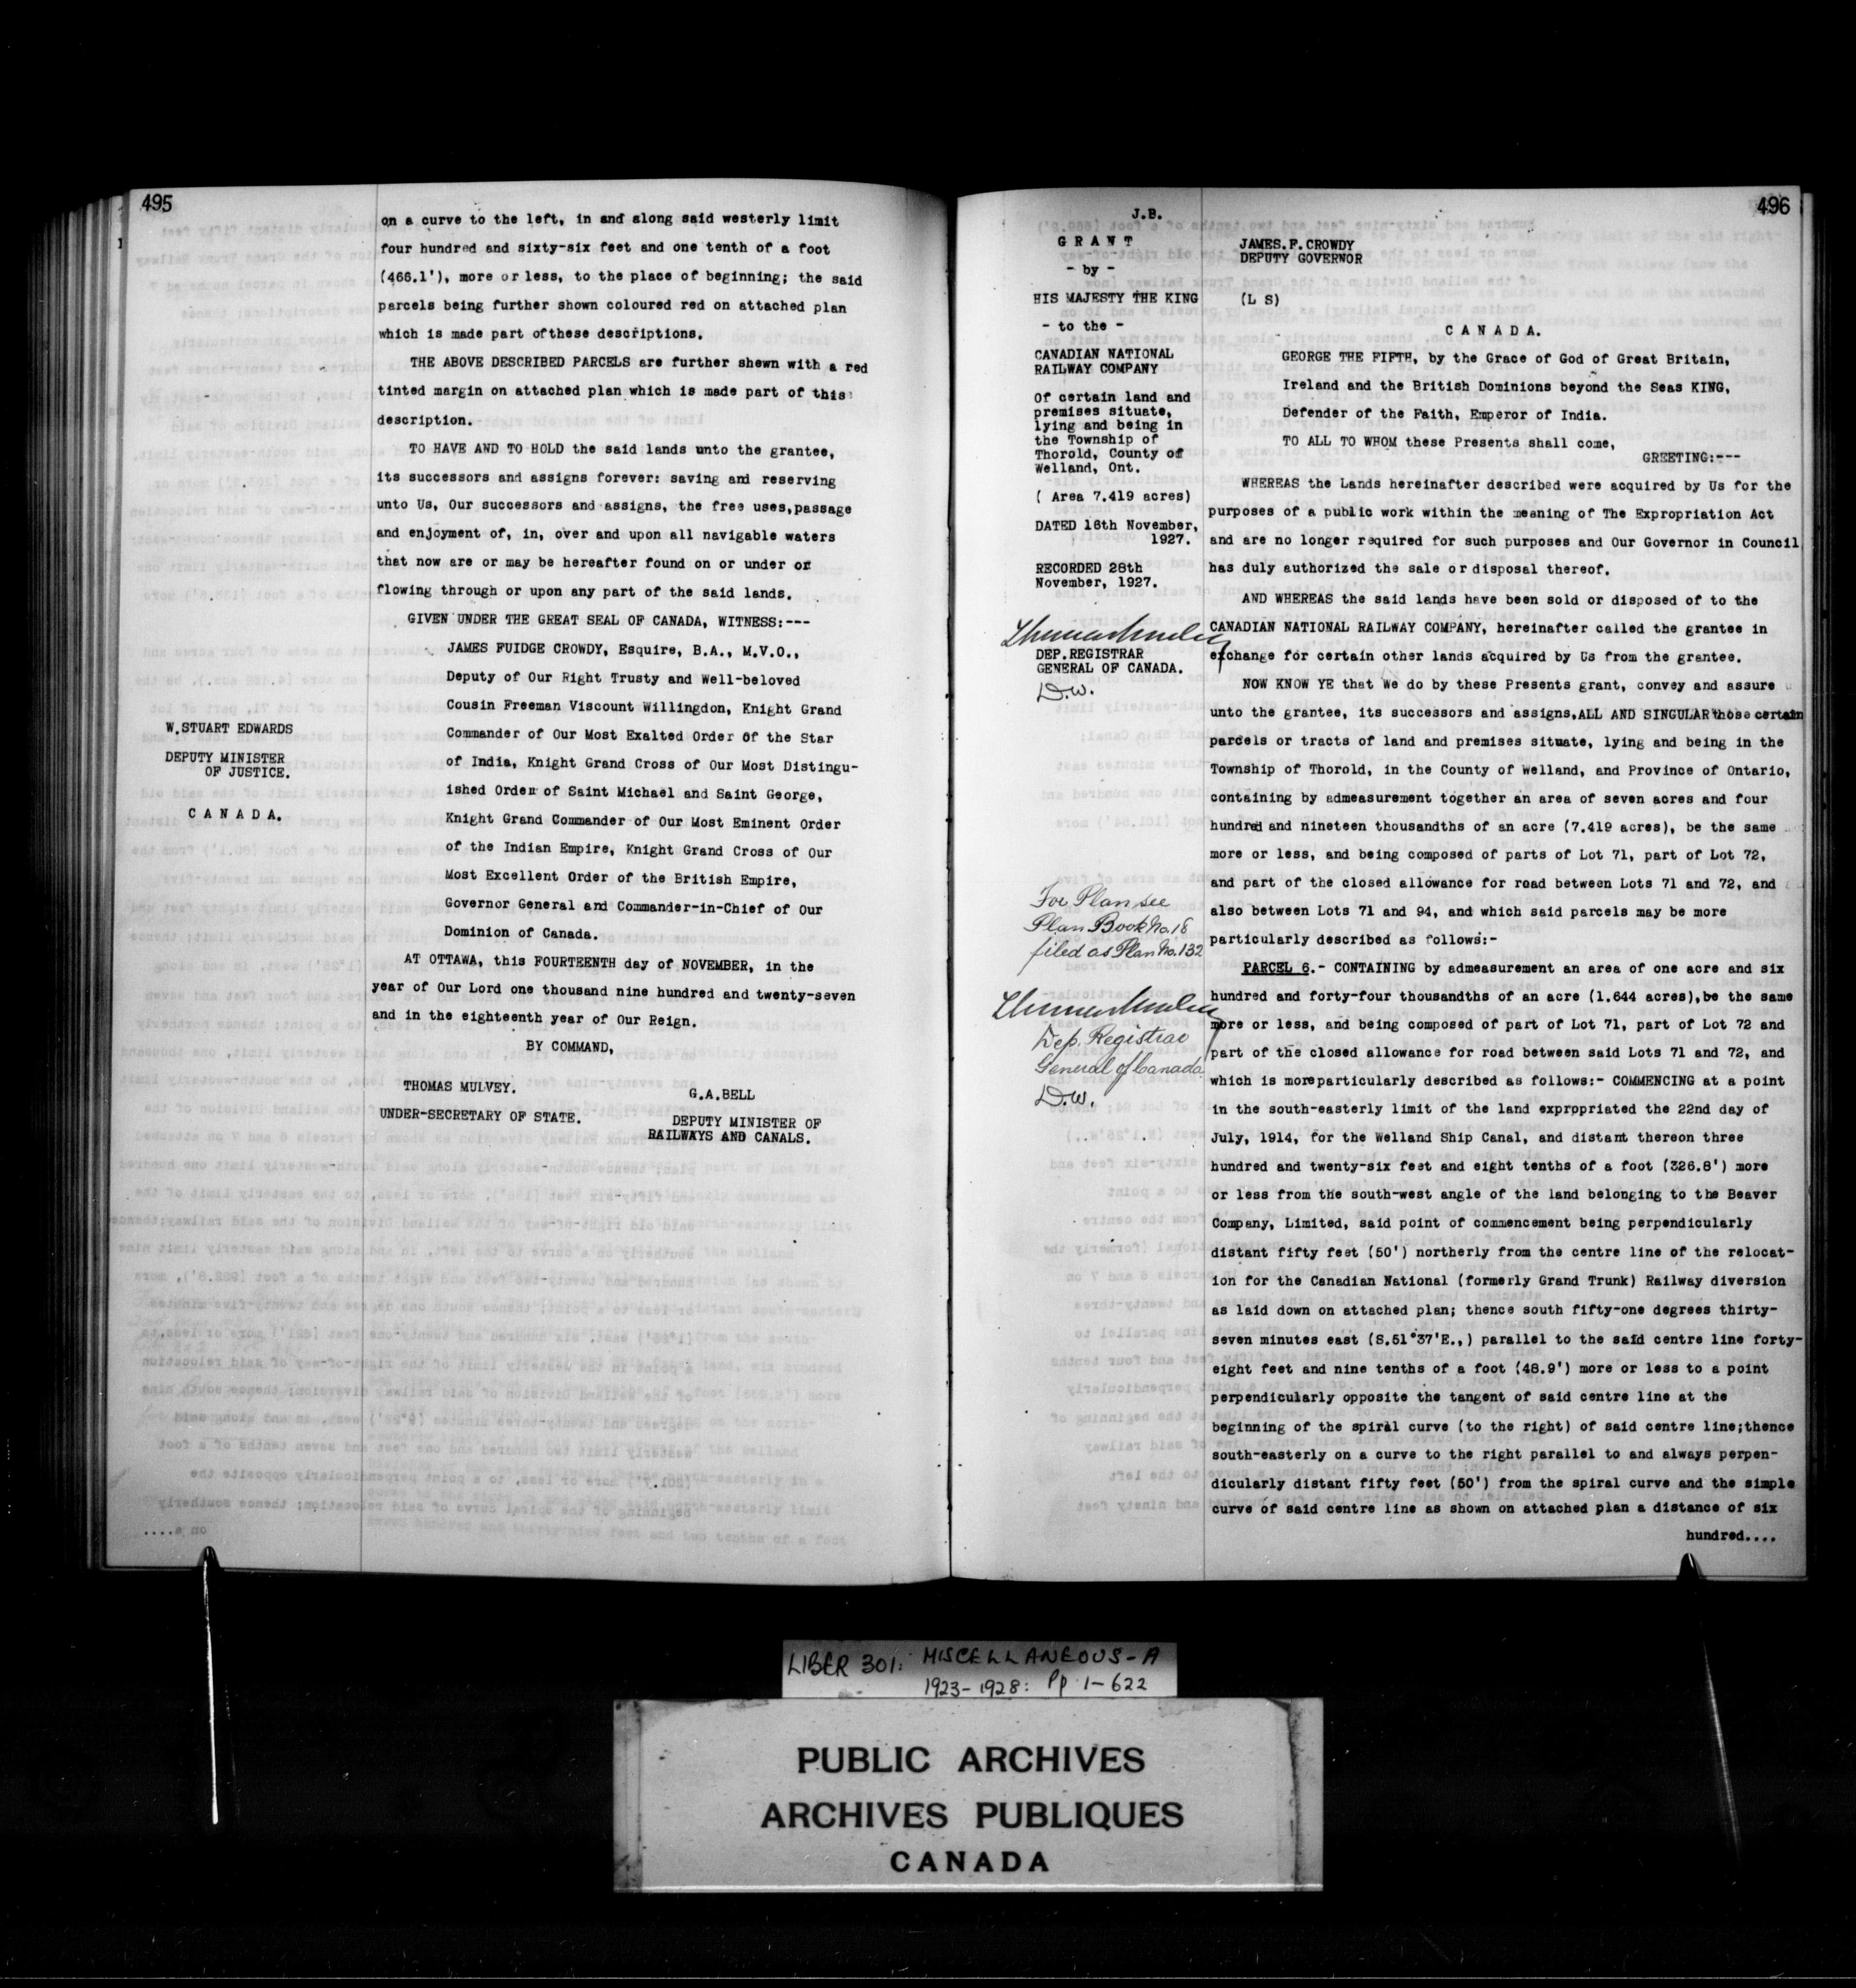 495
on a curve to the left, in and along said westerly limit
four hundred and sixty-six feet and one tenth of a foot
(466.1'), more or less, to the place of beginning; the said
parcels being further shown coloured red on attached plan
which is made part ofthese descriptions.
THE ABOVE DESCRIBED PARCELS are further shewn with a red
tinted margin on attached plan which is made part of this
description.
TO HAVE AND TO HOLD the said lands unto the grantee,
its successors and assigns forever: saving and reserving
unto Us, Our successors and assigns, the free uses,passage
and enjoyment of, in, over and upon all navigable waters
that now are or may be hereafter found on or under or
flowing through or upon any part of the said lands.
GIVEN UNDER THE GREAT SEAL OF CANADA, WITNESS:---
JAMES FUIDGE CROWDY, Esquire, B.A., M.V.O.,
Deputy of Our Right Trusty and Well-beloved
Cousin Freeman Viscount Willingdon, Knight Grand
Commander of Our Most Exalted Order of the Star
of India, Knight Grand Cross of Our Most Distingu-
ished Order of Saint Michael and Saint George,
Knight Grand Commander of Our Most Eminent Order
of the Indian Empire, Knight Grand Cross of Our
Most Excellent Order of the British Empire,
Governor General and Commander-in-Chief of Our
Dominion of Canada.
W.STUART EDWARDS
DEPUTY MINISTER
OF JUSTICE.
C A N A D A.
AT OTTAWA, this FOURTEENTH day of NOVEMBER, in the
year of Our Lord one thousand nine hundred and twenty-seven
and in the eighteenth year of Our Reign.
BY COMMAND,
THOMAS MULVEY.
UNDER-SECRETARY OF STATE.
G.A.BELL
DEPUTY MINISTER OF
RAILWAYS AND CANALS.
496
J.B.
G R A N T
- by -
HIS MAJESTY THE KING
- to the -
CANADIAN NATIONAL
RAILWAY COMPANY
Of certain land and
premises situate,
lying and being in
the Township of
Thorold, County of
Welland, Ont.
( Area 7.419 acres)
DATED 16th November,
1927.
RECORDED 28th
November, 1927.
DEP.REGISTRAR
GENERAL OF CANADA.
D.W.
For Plan see
Plan Book No. 18
filed as Plan No. 132
Dep. Registrar
General of Canada
D.W.
JAMES.F.CROWDY
DEPUTY GOVERNOR
(L S)
C A N A D A.
GEORGE THE FIFTH, by the Grace of God of Great Britain,
Ireland and the British Dominions beyond the Seas KING,
Defender of the Faith, Emperor of India.
TO ALL TO WHOM these Presents shall come,
GREETING:---
WHEREAS the Lands hereinafter described were acquired by Us for the
purposes of a public work within the meaning of The Expropriation Act
and are no longer required for such purposes and Our Governor in Council
has duly authorized the sale or disposal thereof.
AND WHEREAS the said lands have been sold or disposed of to the
CANADIAN NATIONAL RAILWAY COMPANY, hereinafter called the grantee in
exchange for certain other lands acquired by Us from the grantee.
NOW KNOW YE that We do by these Presents grant, convey and assure
unto the grantee, its successors and assigns,ALL AND SINGULAR those certain
parcels or tracts of land and premises situate, lying and being in the
Township of Thorold, in the County of Welland, and Province of Ontario,
containing by admeasurement together an area of seven acres and four
hundred and nineteen thousandths of an acre (7.419 acres), be the same
more or less, and being composed of parts of Lot 71, part of Lot 72,
and part of the closed allowance for road between Lots 71 and 72, and
also between Lots 71 and 94, and which said parcels may be more
particularly described as follows:-
PARCEL 6.- CONTAINING by admeasurement an area of one acre and six
hundred and forty-four thousandths of an acre (1.644 acres),be the same
more or less, and being composed of part of Lot 71, part of Lot 72 and
part of the closed allowance for road between said Lots 71 and 72, and
which is moreparticularly described as follows:- COMMENCING at a point
in the south-easterly limit of the land expropriated the 22nd day of
July, 1914, for the Welland Ship Canal, and distant thereon three
hundred and twenty-six feet and eight tenths of a foot (326.8') more
or less from the south-west angle of the land belonging to the Beaver
Company, Limited, said point of commencement being perpendicularly
distant fifty feet (50') northerly from the centre line of the relocat-
ion for the Canadian National (formerly Grand Trunk) Railway diversion
as laid down on attached plan; thence south fifty-one degrees thirty-
seven minutes east (S.51°37'E.,) parallel to the said centre line forty-
eight feet and nine tenths of a foot (48.9') more or less to a point
perpendicularly opposite the tangent of said centre line at the
beginning of the spiral curve (to the right) of said centre line;thence
south-easterly on a curve to the right parallel to and always perpen-
dicularly distant fifty feet (50') from the spiral curve and the simple
curve of said centre line as shown on attached plan a distance of six
hundred....
LIBER 301: MISCELLANEOUS-A
1923-1928: Pp 1-622
PUBLIC ARCHIVES
ARCHIVES PUBLIQUES
CANADA